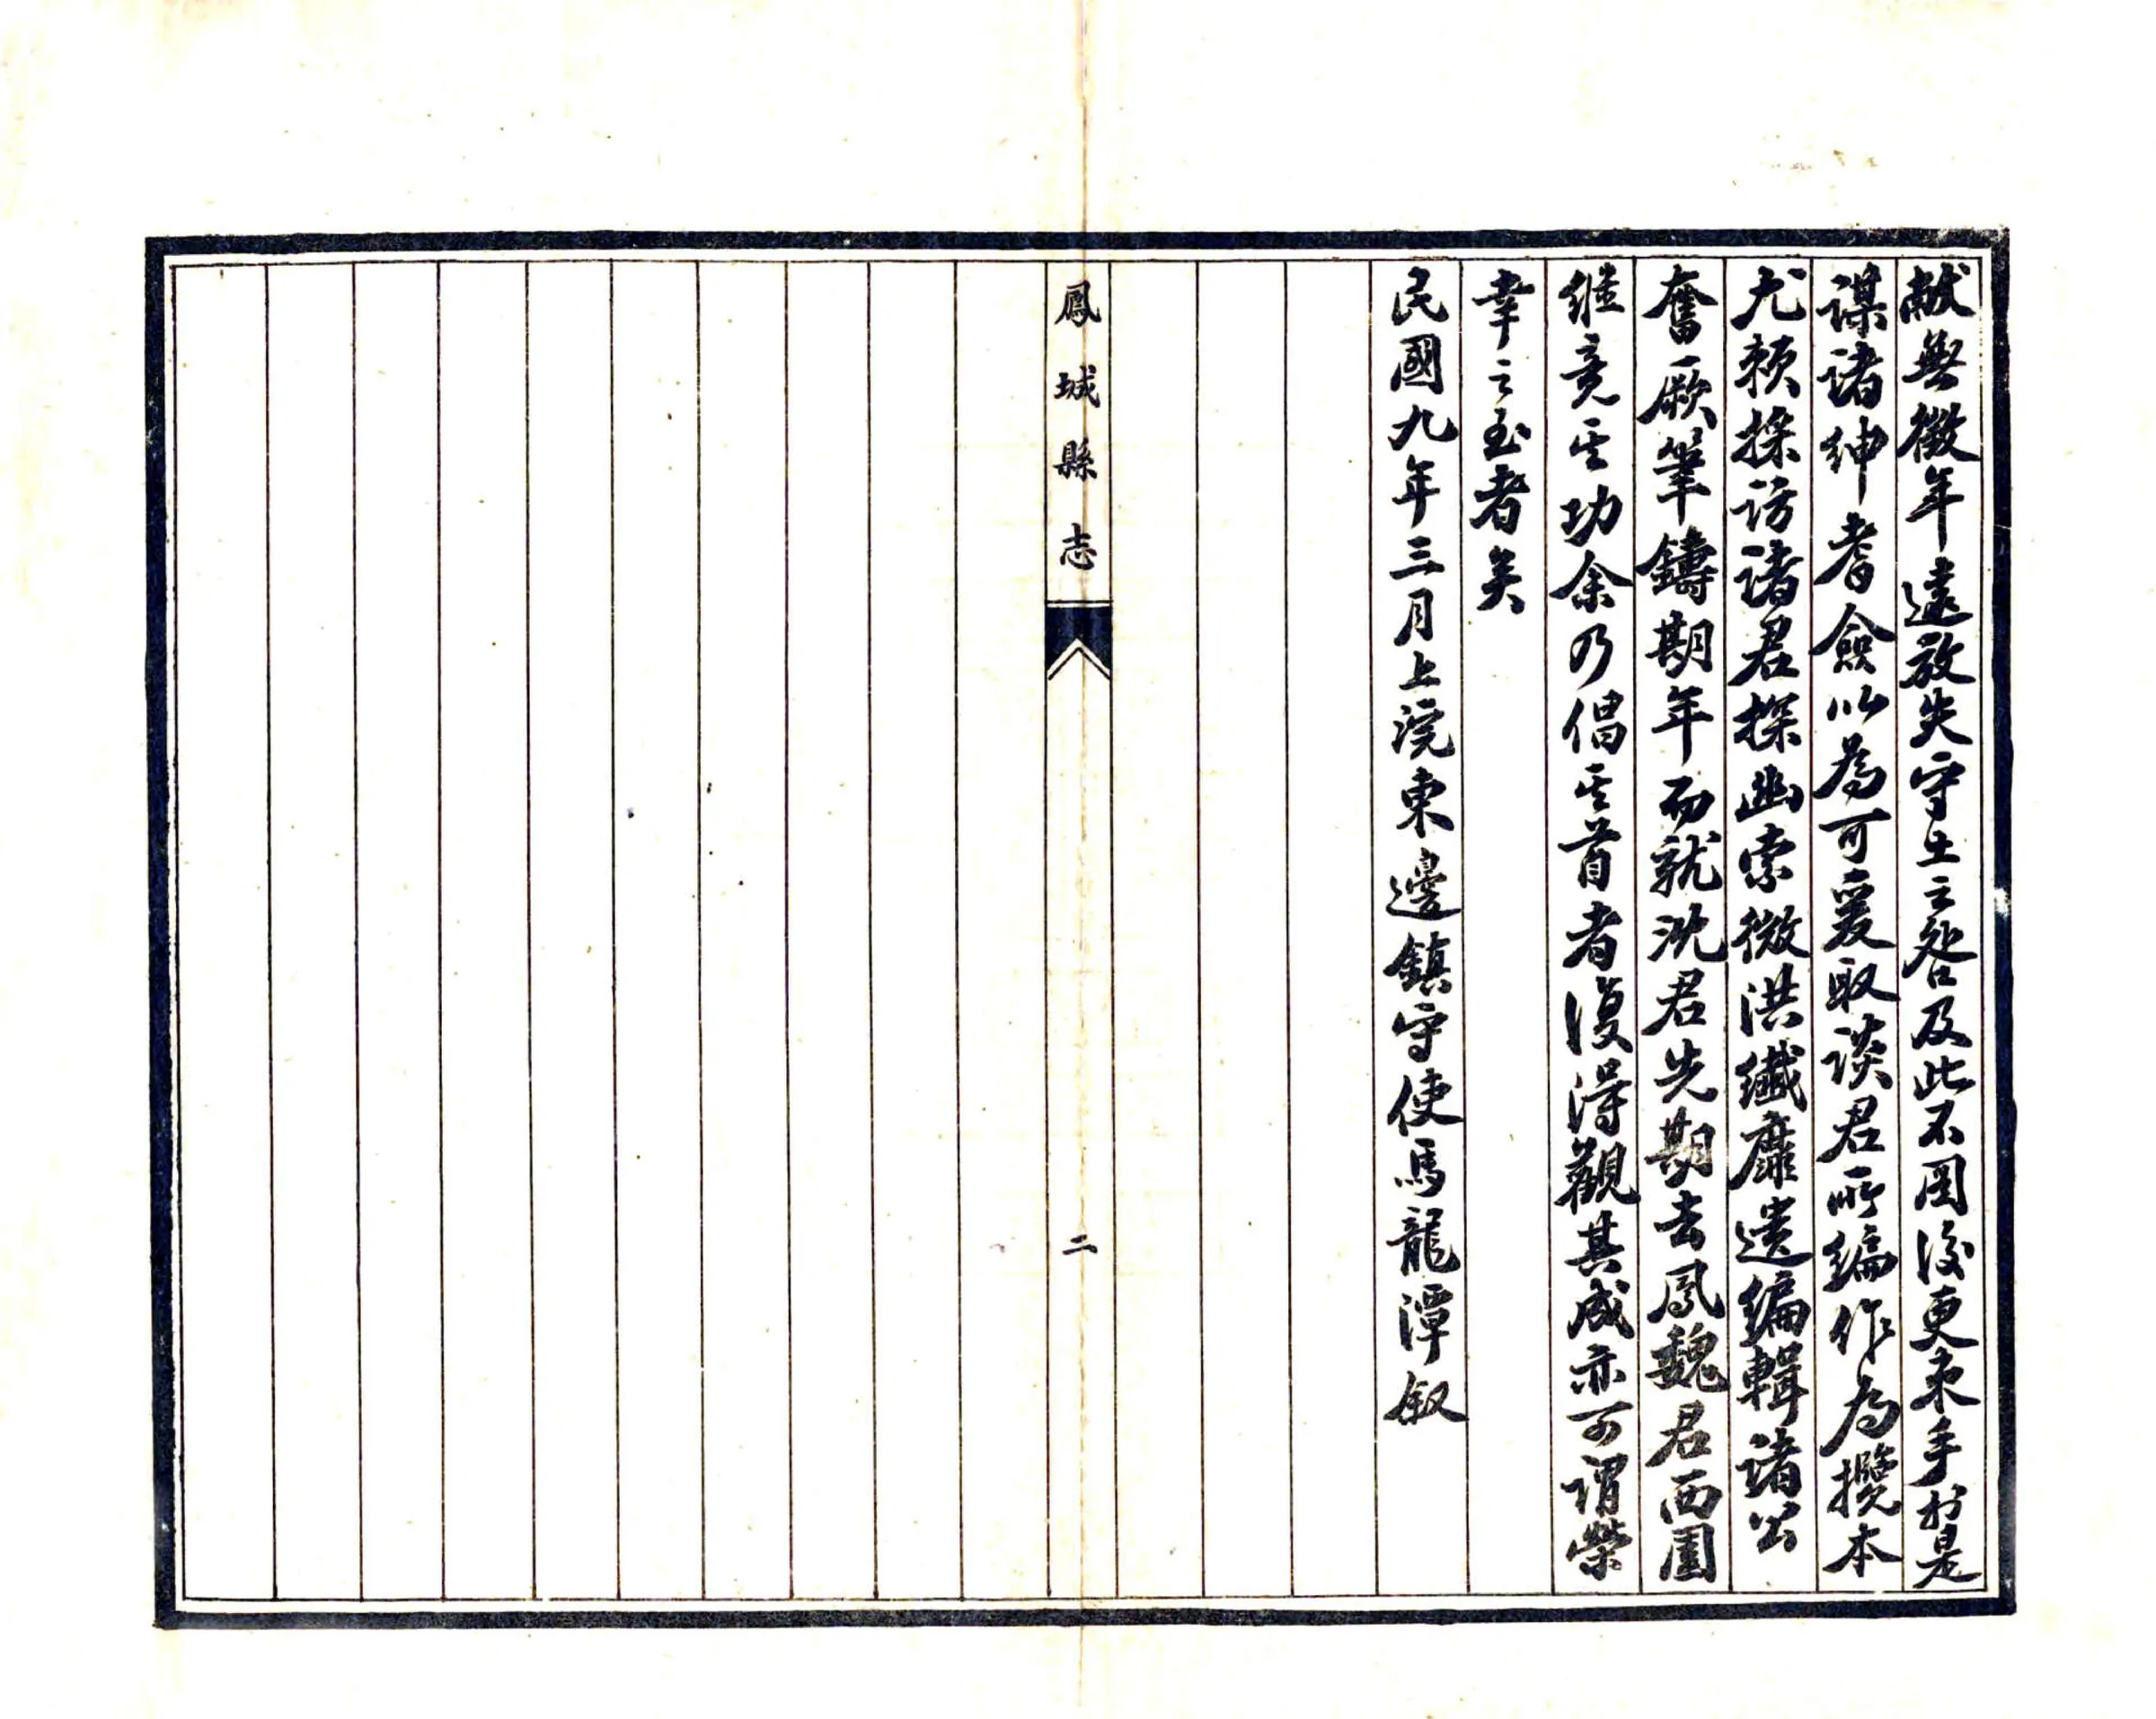 献無徵年遠放失守土之咎及此不圖後更束手於是
謀諸紳耆僉以爲可爰取談君所編作爲攬本
尤賴採訪諸君探幽索微洪纖靡遺編輯諸公
奮厥筆鑄期年而就沈君先期去鳳魏君西園
繼竟其功余乃倡其首者復得觀其成亦可謂榮
幸之至者矣
民國九年三月上浣東邊鎮守使馬龍潭叙
鳳城縣志
二